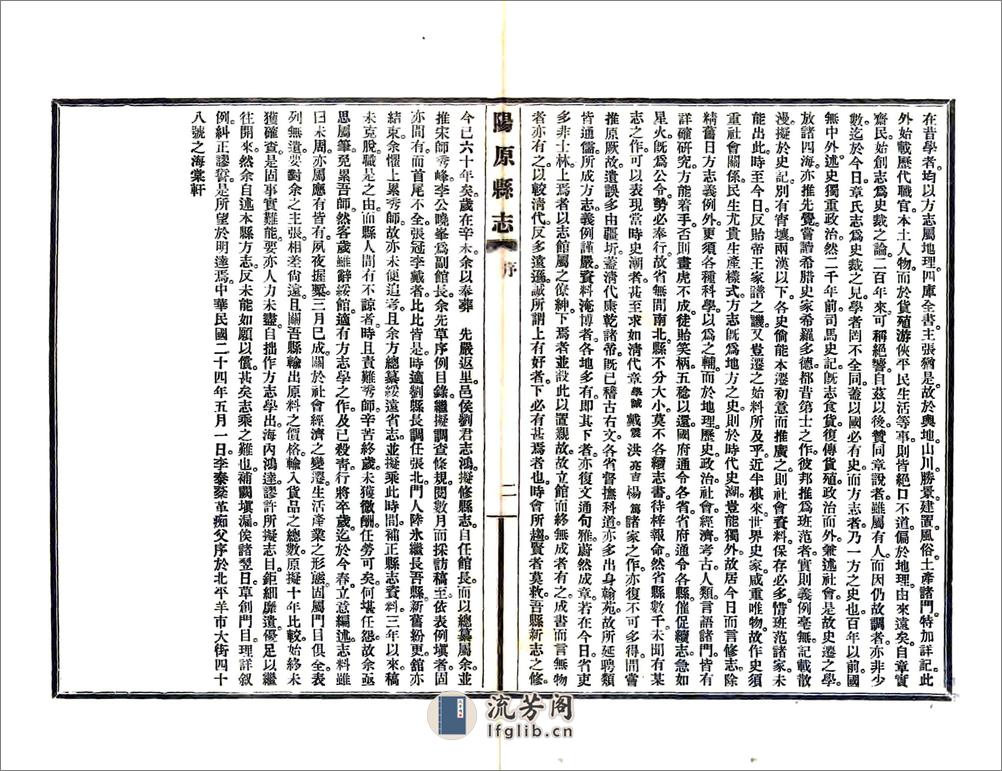 在昔學者均以方志屬地理四庫全書主張猶是故於輿地山川勝景建置風俗土產諸門特加詳記此
外始載歷代職官本土人物而於貨殖游俠平民生活等事則皆絕口不道偏於地理由來遠矣自章實
齋民始創志爲史裁之論二百年來可稱絕響自茲以後贊同章說者雖屬有人而因仍故調者亦非少
數迄於今日章氏志爲史裁之見學者罔不全同蓋以國必有史而方志者乃一方之史也百年以前國
無中外述史獨重政治然二千年前司馬史記既志食貨復傳貨殖政治而外兼述社會是故史遷之學
放諸四海亦推先覺嘗讀希臘史家希羅多德都昔第士之作彼邦推爲班范者實則義例毫無記載散
漫擬於史記別有霄壤兩漢以下各史倘能本遷初意而推廣之則社會資料保存必多惜班范諸家未
能出此時至今日反貽帝王家譜之譏又豈遷之始料所及乎近半棋來世界史家咸重唯物故作史須
重社會關係民生尤貴生產樣式方志既爲地方之史則於時代史湖豈能獨外故居今日而言修志除
精舊日方志義例外更須各種科學以爲之輔而於地理歷史政治社會經濟考古人類言語諸門皆有
詳確研究方能着手否則畫虎不成徒貽笑柄五稔以還國府通令各省省府通令各縣催促續志急如
星火既爲公令勢必奉行故省無間南北縣不分大小莫不各續志書待梓報命然省縣數千未聞有某
志之作可以表現當時史潮者甚至求如清代章學誠戴震洪亮吉楊篤諸家之作亦復不可多得間嘗
推原厥故遺誤多由疆圻蓋清代康乾諸帝既已稽古右文各省督撫科道亦多出身翰苑故所延聘類
皆通儒所成方志義例謹嚴資料淹博者各地多有即其下者亦復文通句雅蔚然成章若在今日省吏
多非士林上焉者以志館屬之僚紳下焉者並設此以置親故故立館而終無成者有之成書而言無物
者亦有之以較清代反多遠遜誠所謂上有好者下必有甚焉者也時會所趨賢者莫救吾縣新志之修
陽原縣志
序
二
今已六十年矣歲在辛未余以奉葬 先嚴返里邑侯劉君志鴻擬修縣志自任館長而以總纂屬余並
推宋師秀峰李公曉峯爲副館長余先草序例目錄繼擬調查條規閱數月而採訪稿至依表例塡者固
亦間有而首尾不全張冠李戴者比比者是時適劉縣長調任張北門人陸氷繼長吾縣新舊紛更館亦
結束余懼上累秀師故亦未便追考且余方總纂綏遠省志並擬乘此時間補正縣志資料三年以來稿
未克脫職是之由而縣人間有不諒者時且責難秀師辛苦終歲未獲徵酬任勞可矣何堪任怨故余亟
思屬筆免累吾師然客歲雖辭綏館適有方志學之作及已殺靑行將卒歲迄於今春立意編述志料雖
曰未周亦屬應有皆有夙夜握槧三月已成關於社會經濟之變遷生活產業之形態固屬門目俱全表
列無遺要對余之主張相差尙遠且關吾縣輸出原料之價格輸入貨品之總數原擬十年比較始終未
獲確查是固事實難能要亦人力未盡自拙作方志學出海內鴻達謬許所擬志目鉅細靡遺優足以繼
往開來然余自述本縣方志反未能如願以償甚矣志乘之難也補闕塡漏俟諸翌日草創門目理詳叙
例糾正謬誤是所望於明達焉中華民國二十四年五月一日李泰棻革痴父序於北平羊市大街四十
八號之海棠軒
流芳阁
lfglib.cn